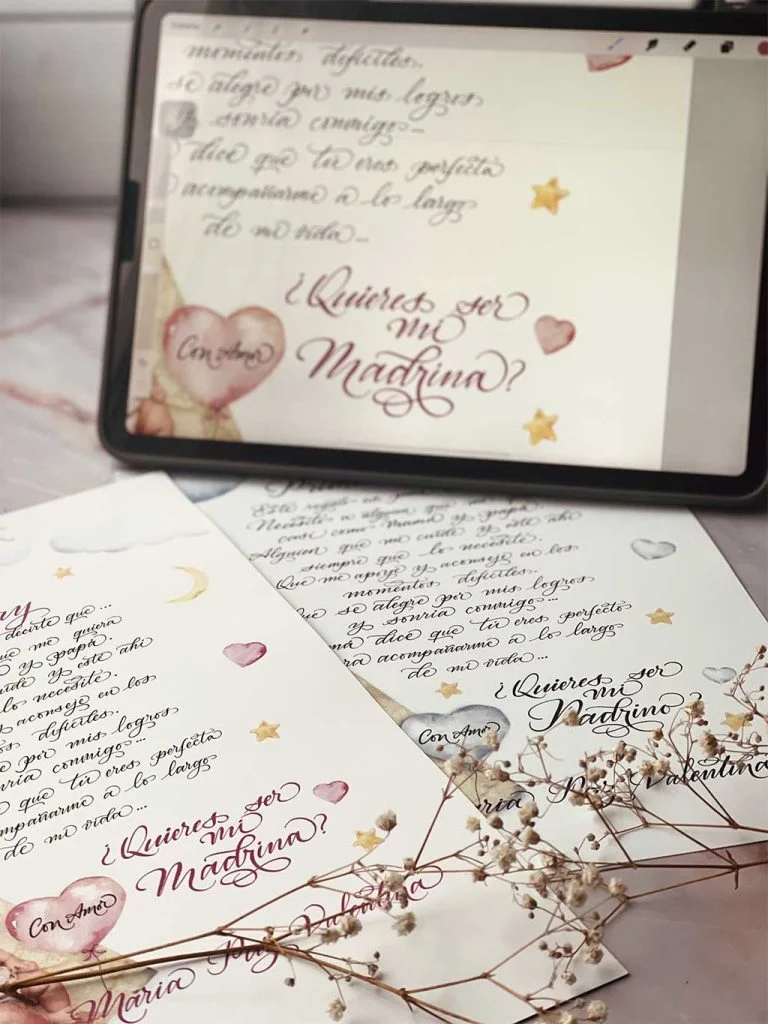 momentos difíciles.
se alegre por mis logros
y sonría conmigo...
dice que tu eres perfecta
acompañarme a lo largo
de mi vida...
¿Quieres ser
mi
Madrina?
Con Amor
Necesito a alguien que me quiera
casi como mamá y papá.
Alguien que me cuide y esté ahí
siempre que lo necesite.
Que me apoye y aconseje en los
momentos difíciles..
que se alegre por mis logros
y sonría conmigo...
dice que tu eres perfecto
acompañarme a lo largo
de mi vida...
¿Quieres ser
mi
Padrino?
Con Amor
Paz Valentina
decirte que...
que me quiera
y papá.
cuide y esté ahí
lo necesite.
y aconseje en los
difíciles.
por mis logros
conmigo...
que tu eres perfecta
acompañarme a lo largo
de mi vida...
¿Quieres ser
mi
Madrina?
Con Amor
María Paz Valentina